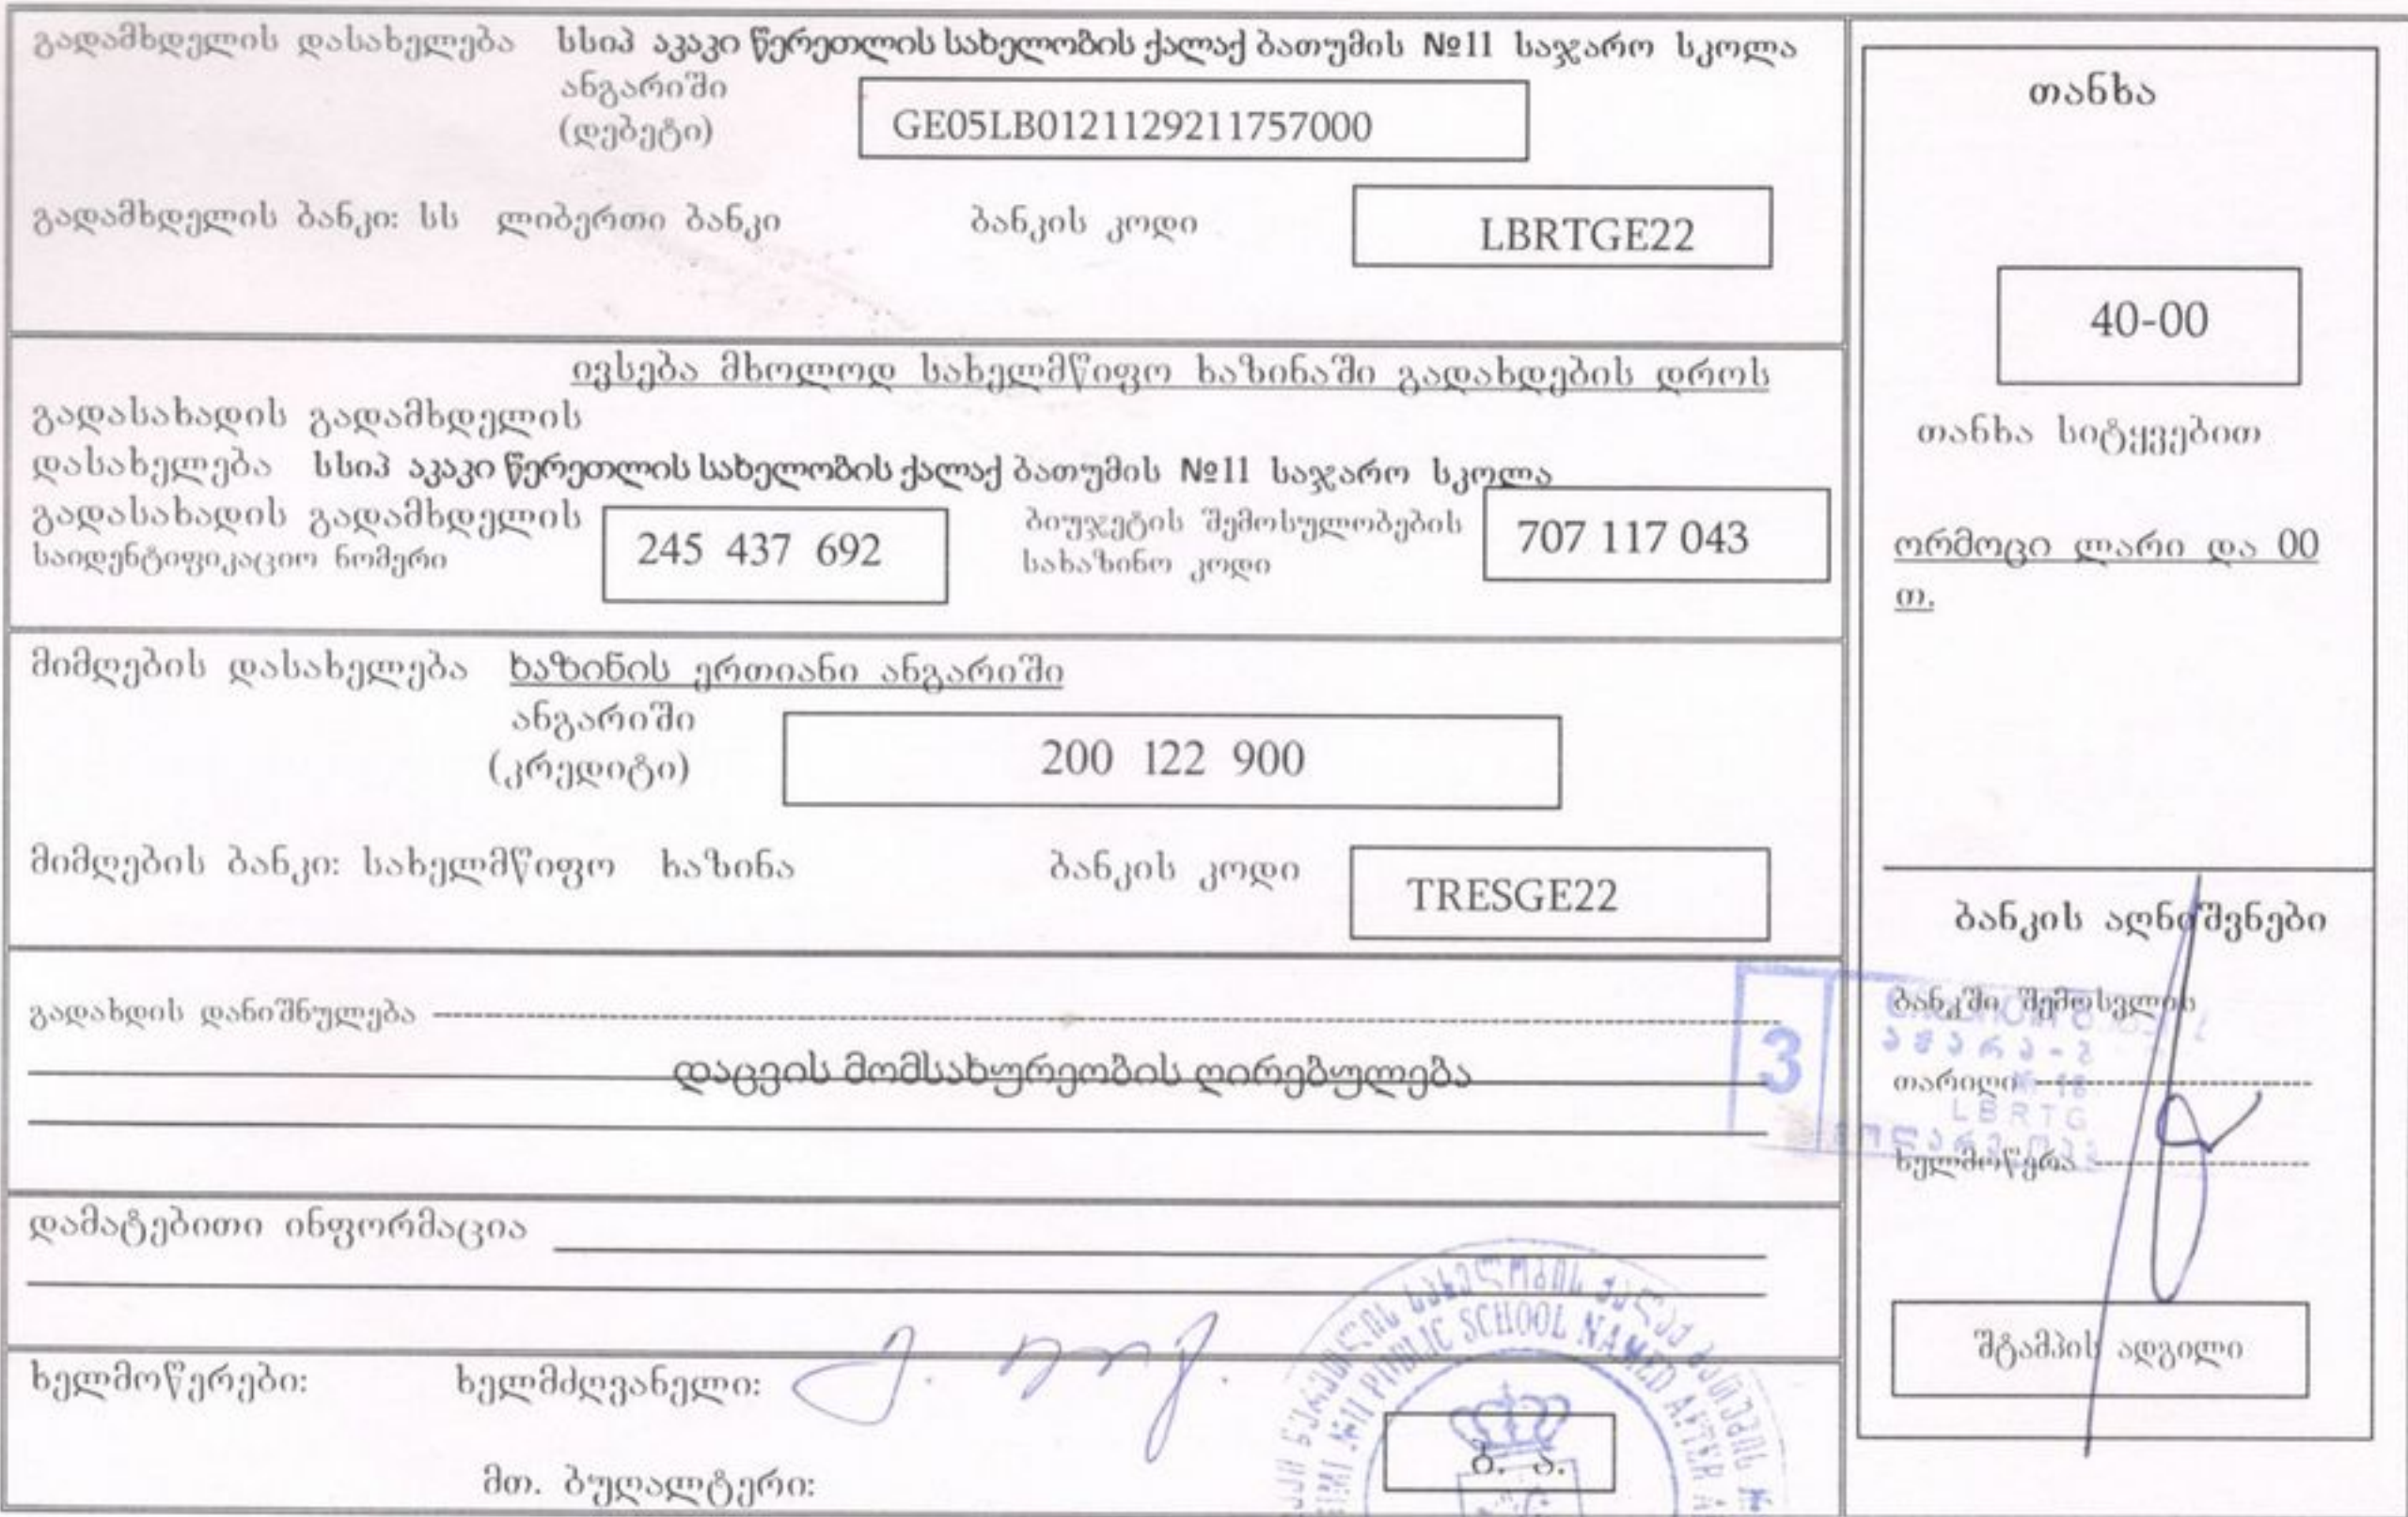 გადამხდელის დასახელება სსიპ აკაკი წერეთლის სახელობის ქალაქ ბათუმის №11 საჯარო სკოლა
ანგარიში
(დებეტი)
GE05LB0121129211757000
გადამხდელის ბანკი: სს ლიბერთი ბანკი ბანკის კოდი LBRTGE22
ივსება მხოლოდ სახელმწიფო ხაზინაში გადახდების დროს
გადასახადის გადამხდელის
დასახელება სსიპ აკაკი წერეთლის სახელობის ქალაქ ბათუმის №11 საჯარო სკოლა
გადასახადის გადამხდელის
საიდენტიფიკაციო ნომერი
245 437 692
ბიუჯეტის შემოსულობების
სახაზინო კოდი
707 117 043
მიმღების დასახელება ხაზინის ერთიანი ანგარიში
ანგარიში
(კრედიტი)
200 122 900
მიმღების ბანკი: სახელმწიფო ხაზინა ბანკის კოდი TRESGE22
გადახდის დანიშნულება
დაცვის მომსახურეობის ღირებულება
დამატებითი ინფორმაცია
ხელმოწერები: ხელმძღვანელი:
მთ. ბუღალტერი:
ბ. ა.
სახელობის ქალაქ ბათუმის №
PUBLIC SCHOOL NAMED AFTER
თანხა
40-00
თანხა სიტყვებით
ორმოცი ლარი და 00
თ.
ბანკის აღნიშვნები
ბანკში შემოსვლის
თარიღი
ხელმოწერა
3
LBRTG
შტამპის ადგილი